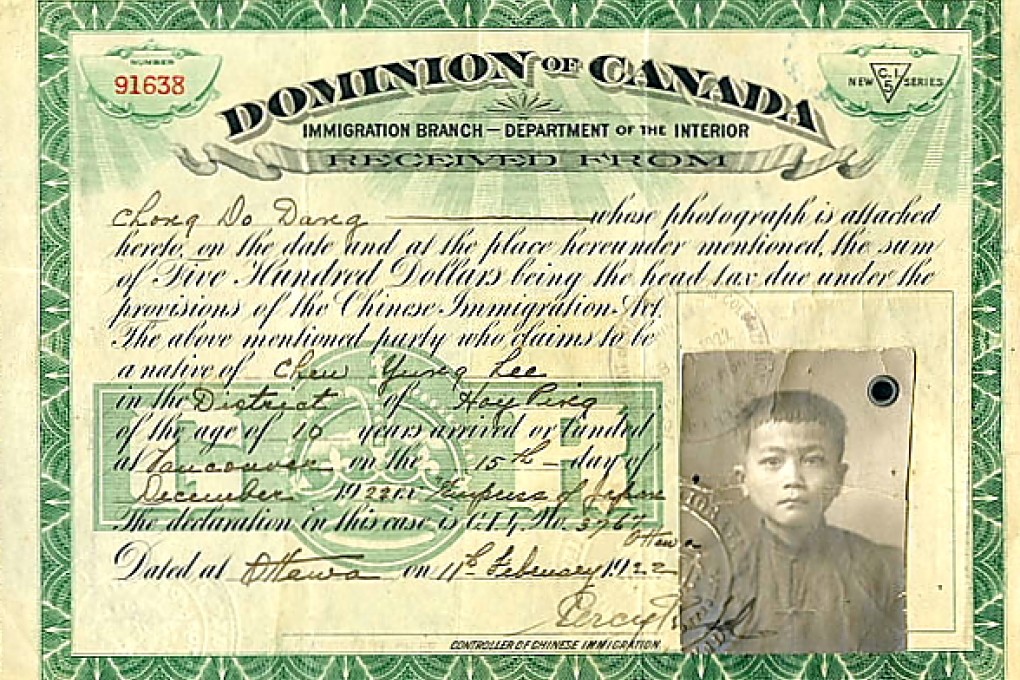 NUMBER
91638
NEW C.I.5 SERIES
DOMINION OF CANADA
IMMIGRATION BRANCH — DEPARTMENT OF THE INTERIOR
RECEIVED FROM
Chong Do Dang whose photograph is attached
hereto, on the date and at the place hereunder mentioned, the sum
of Five Hundred Dollars being the head tax due under the
provisions of the Chinese Immigration Act.
The above mentioned party who claims to be
a native of Chew Yung Lee
in the District of Hoy Ping
of the age of 10 years arrived or landed
at Vancouver on the 15th day of
December Empress of Japan
The declaration in this case is C.I.4. No. 3967
Ottawa
Dated at Ottawa on 11th February 1922
Percy
CONTROLLER OF CHINESE IMMIGRATION